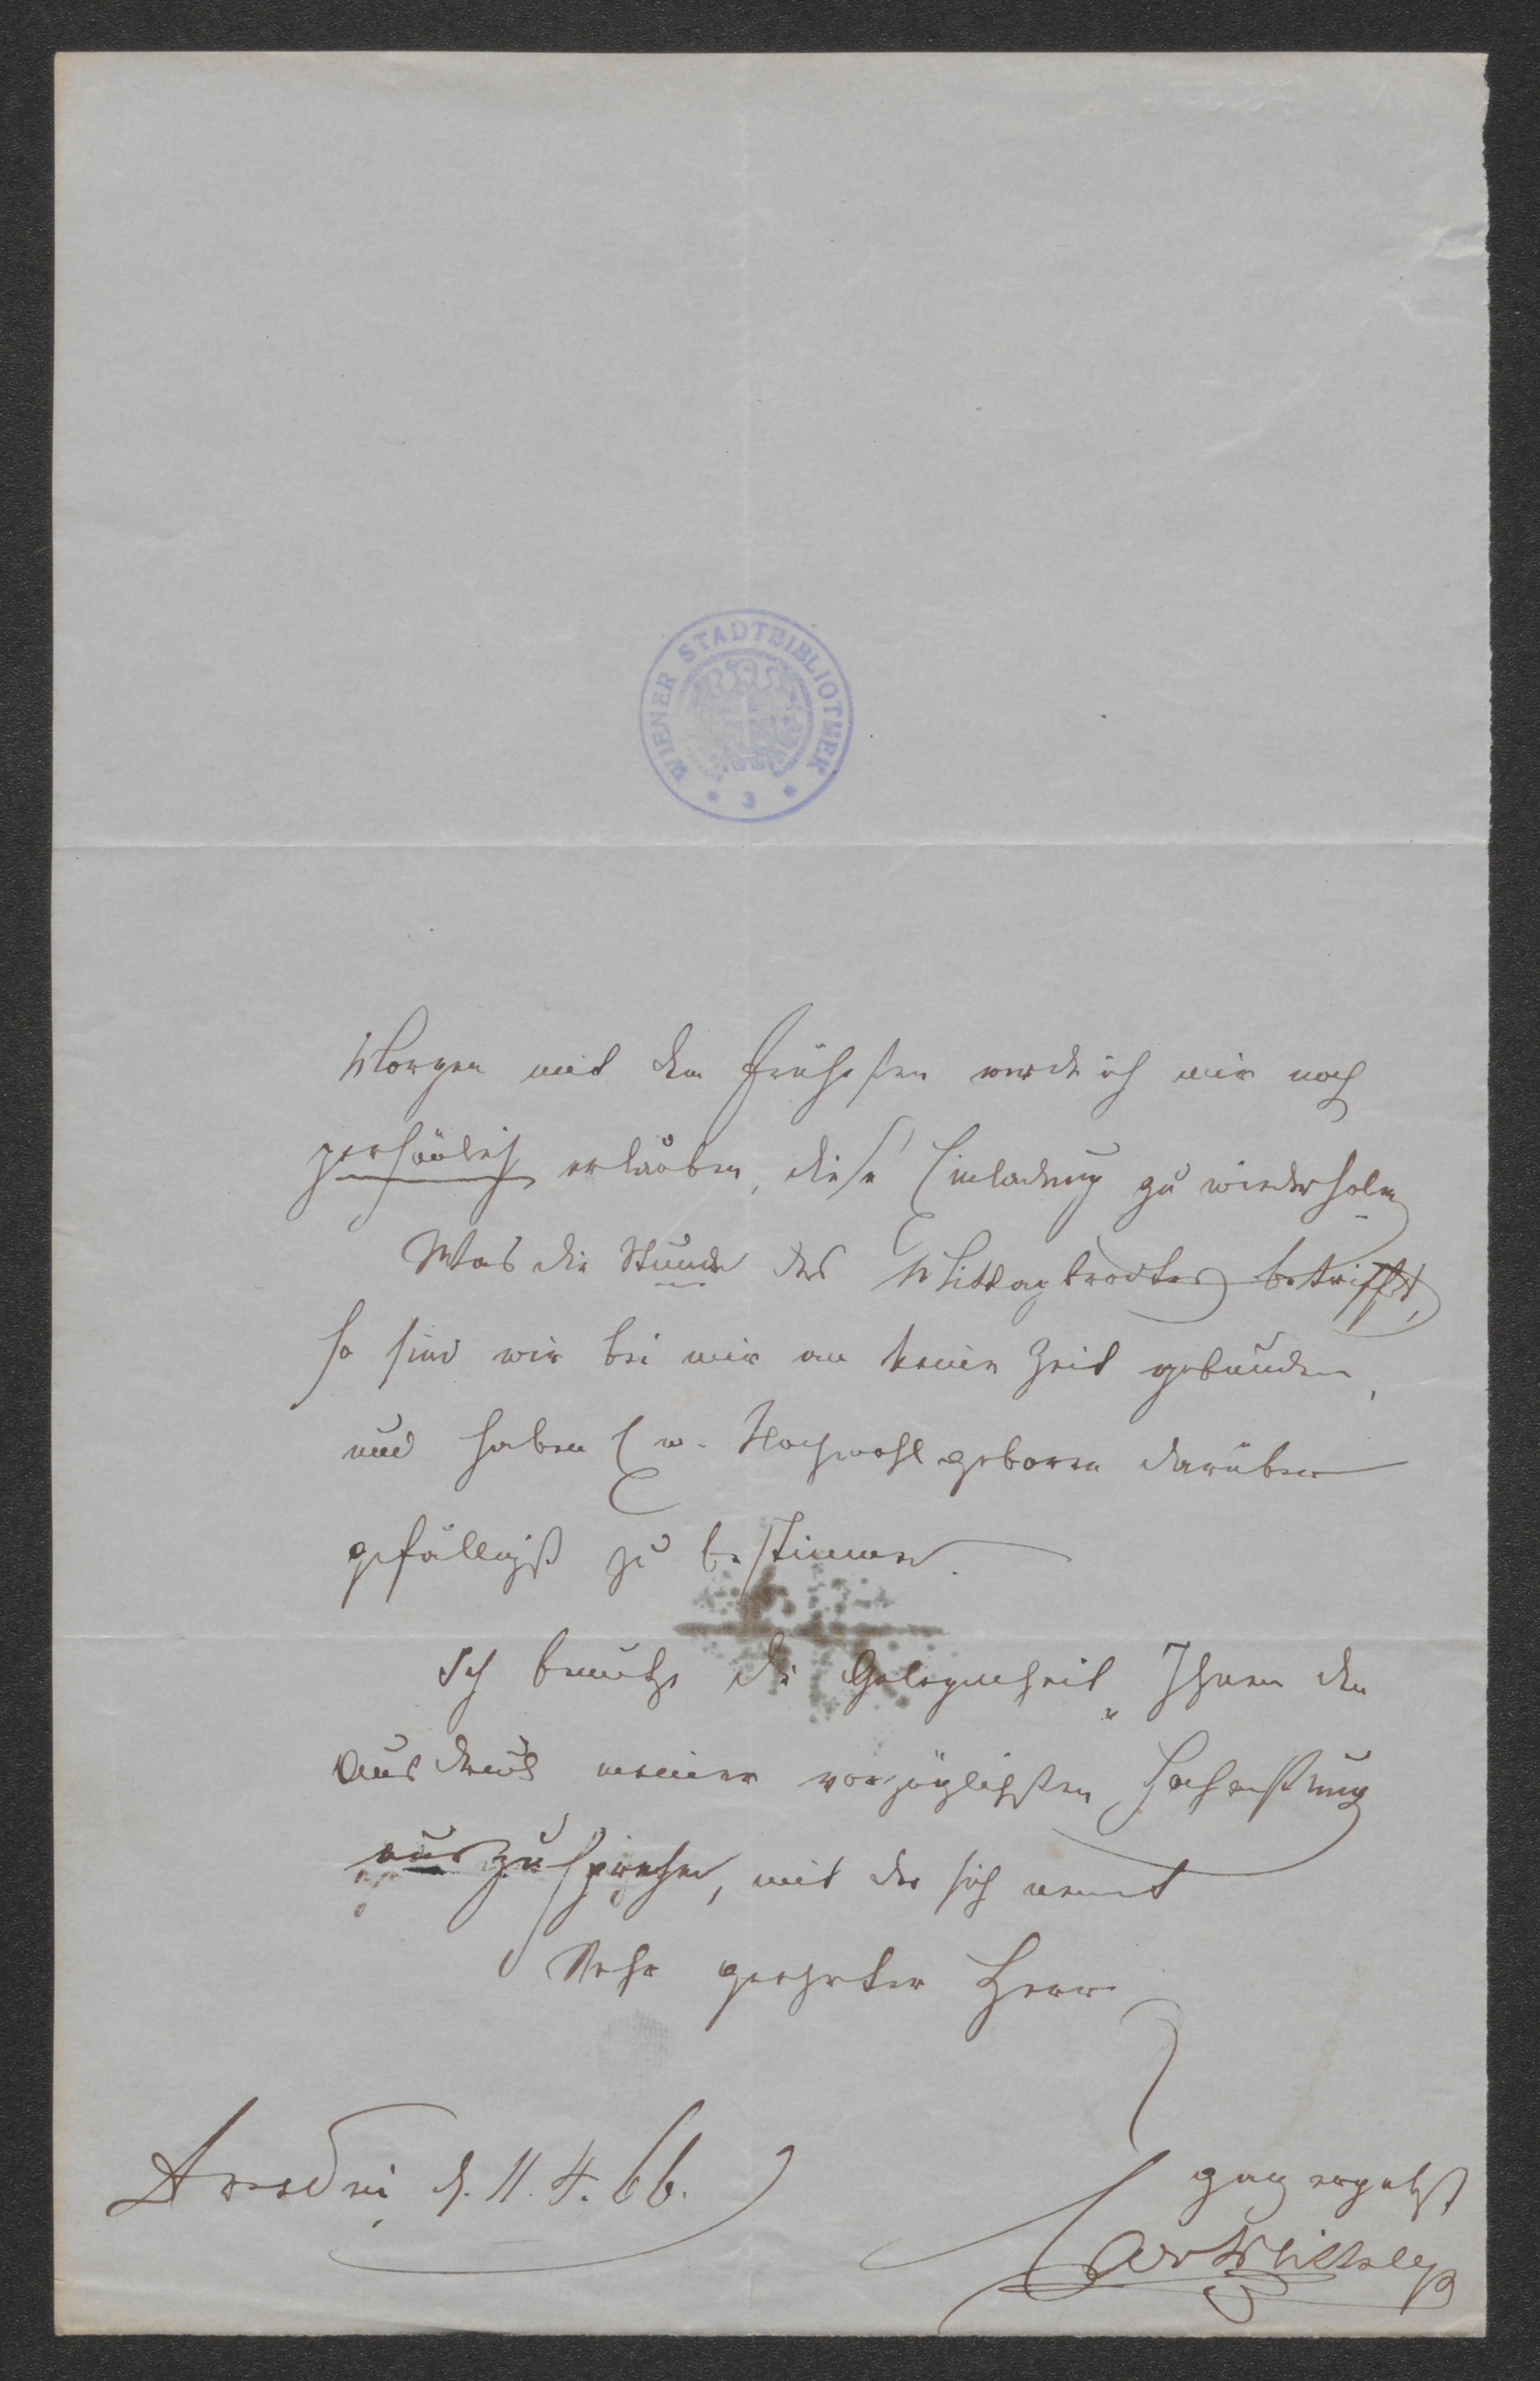 WIENER STADTBIBLIOTHEK
* 3 *
Morgen mit dem Frühesten werde ich mir noch
persönlich erlauben, diese Einladung zu wiederholen
Was die Stunde des Mittagbrodtes betrifft,
so sind wir bei mir an keine Zeit gebunden,
und haben Ew. Hochwohlgeboren darüber
gefälligst zu bestimmen.
Ich benutze die Gelegenheit, Ihnen den
Ausdruck meiner vorzüglichsten Hochachtung
auszusprechen, mit der sich nennt
Sehr geehrter Herr
Dresden d. 11. 4. 66.
ganz ergebenst